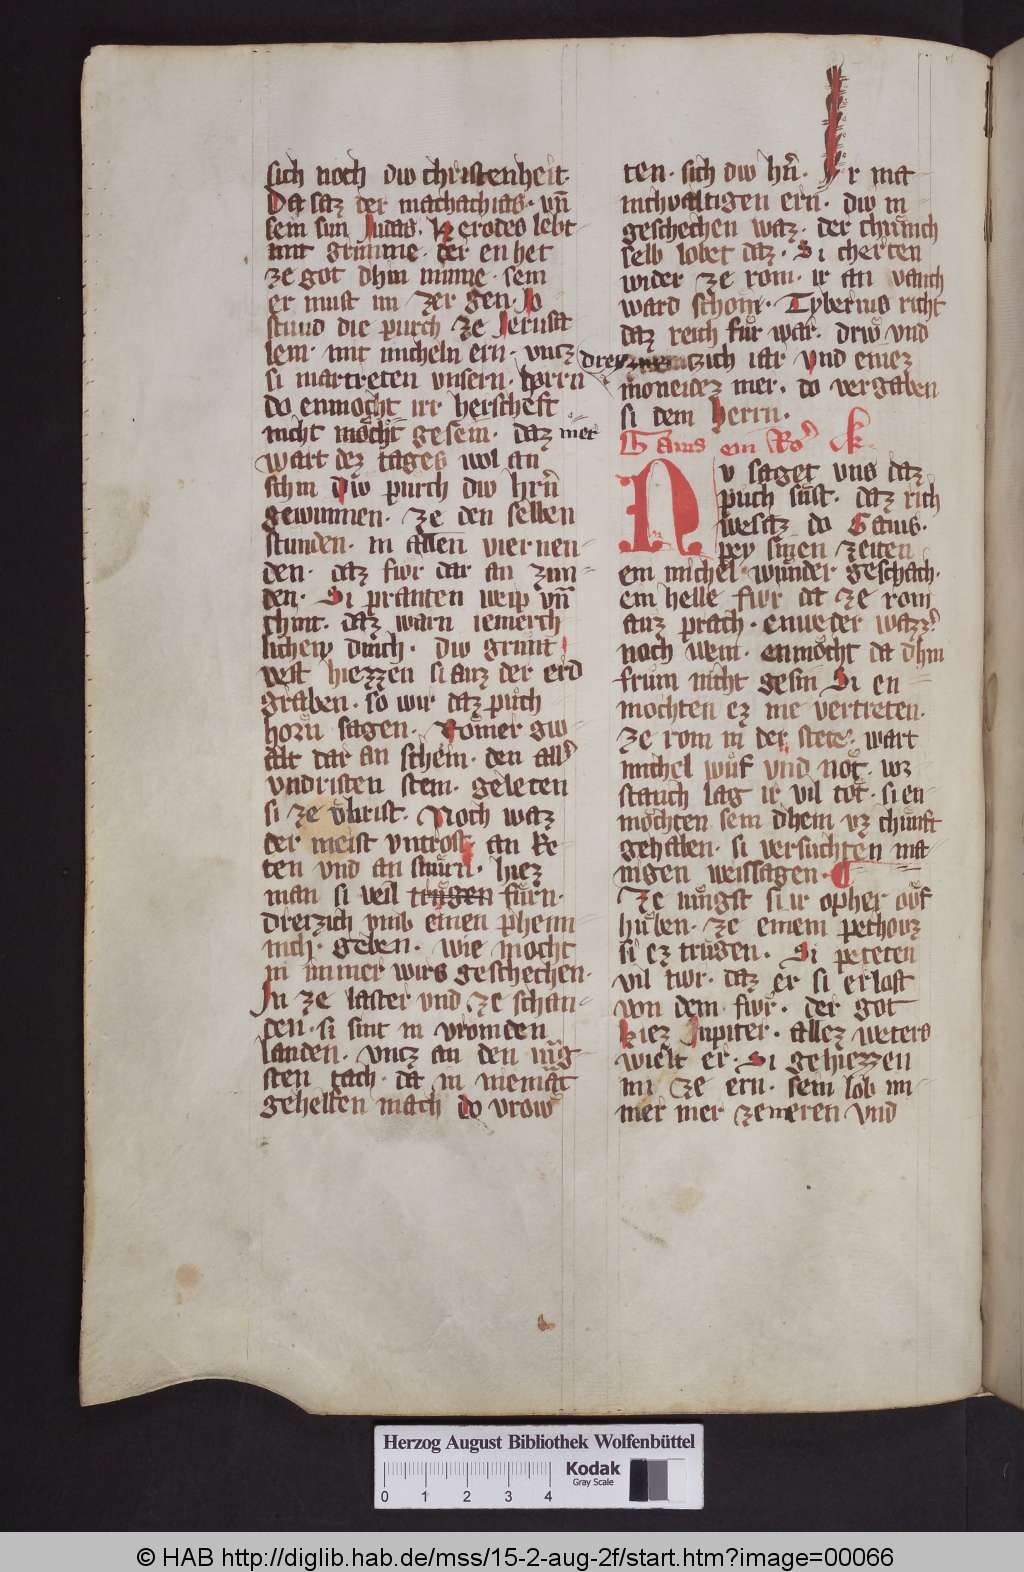 sich noch diw christenheit·
Da saz der machachias· vn̄
sein sun Judas· Herodes lebt
mit grimme· der en het
ze got dhin minne· sein
er must im zer gen· Jo
stuͦnd die purch ze Jerusa
lem· mit micheln ern· vncz
si martreten vnsern· herrn
do enmocht irr herscheft
nicht moͤcht gesein· daz mer
wart dez tages wol an
schin diw purch diw hrn̄
gewunnen· ze den selben
stunden· in allen viern en
den· daz fiwr dar an zun
den· Si pranten weip vn̄
chint· daz warn iemerch
lichew dinch· diw grunt
vest hiezzen si auz der erd
graben· so wir daz puͦch
horn sagen· Romer giw
alt dar an schein· den all
vndristen stein· geleten
si ze vͦbrist· Noch waz
der meist vntrost an Re
ten vnd an stiuͤrn· hiez
man si veil truͤgen fuͤrn·
dreizich vmb einen phenn
nich· geben· wie mocht
in immer wirs geschechen·
In ze laster vnd ze schan
den· si sint in vromden
landen· vncz an den iung
sten tach· da in niemant
gehelfen mach do vrow
ten· sich diw hr̄· Ir ma
nichvaltigen ern· diw in
geschechen waz· der chuͤnich
selb lobet daz· Si cherten
wider ze rom· ir an vanch
ward schoͤn· Tyberius richt
daz reich fuͤr war· driw vnd
dreizzich iar vnd einez
moneidez mer· do vergaben
si dem herrn·
Gaius ein Ro k
NV saget vns daz
puͦch sust· daz rich
wesaz do Gaius·
pey sinen zeiten
ein michel wunder geschach·
ein helle fiwr da ze rom
auz prach· enweder wazz
noch wein· enmoͤcht da dhin
frum nicht gesin Si en
mochten ez nie vertreten·
ze rom in der stete· wart
michel wuͦf vnd not· wz
stauch lag ir vil tot· si en
moͤchten sein dhein vz chuͤnft
gehaben· si versuͦchten ma
nigen weissagen·
Ze iungst si ir opher ouf
huͦben· ze einem pethouz
si ez truͦgen· Si peteten
vil tiwr· daz er si erlost
von dem fiwr· der got
hiez Jupiter· allez weters
wielt er· Si gehiezzen
im ze ern· sein lob im
mer mer ze meren vnd
Herzog August Bibliothek Wolfenbüttel
0 1 2 3 4
Kodak
Gray Scale
© HAB http://diglib.hab.de/mss/15-2-aug-2f/start.htm?image=00066